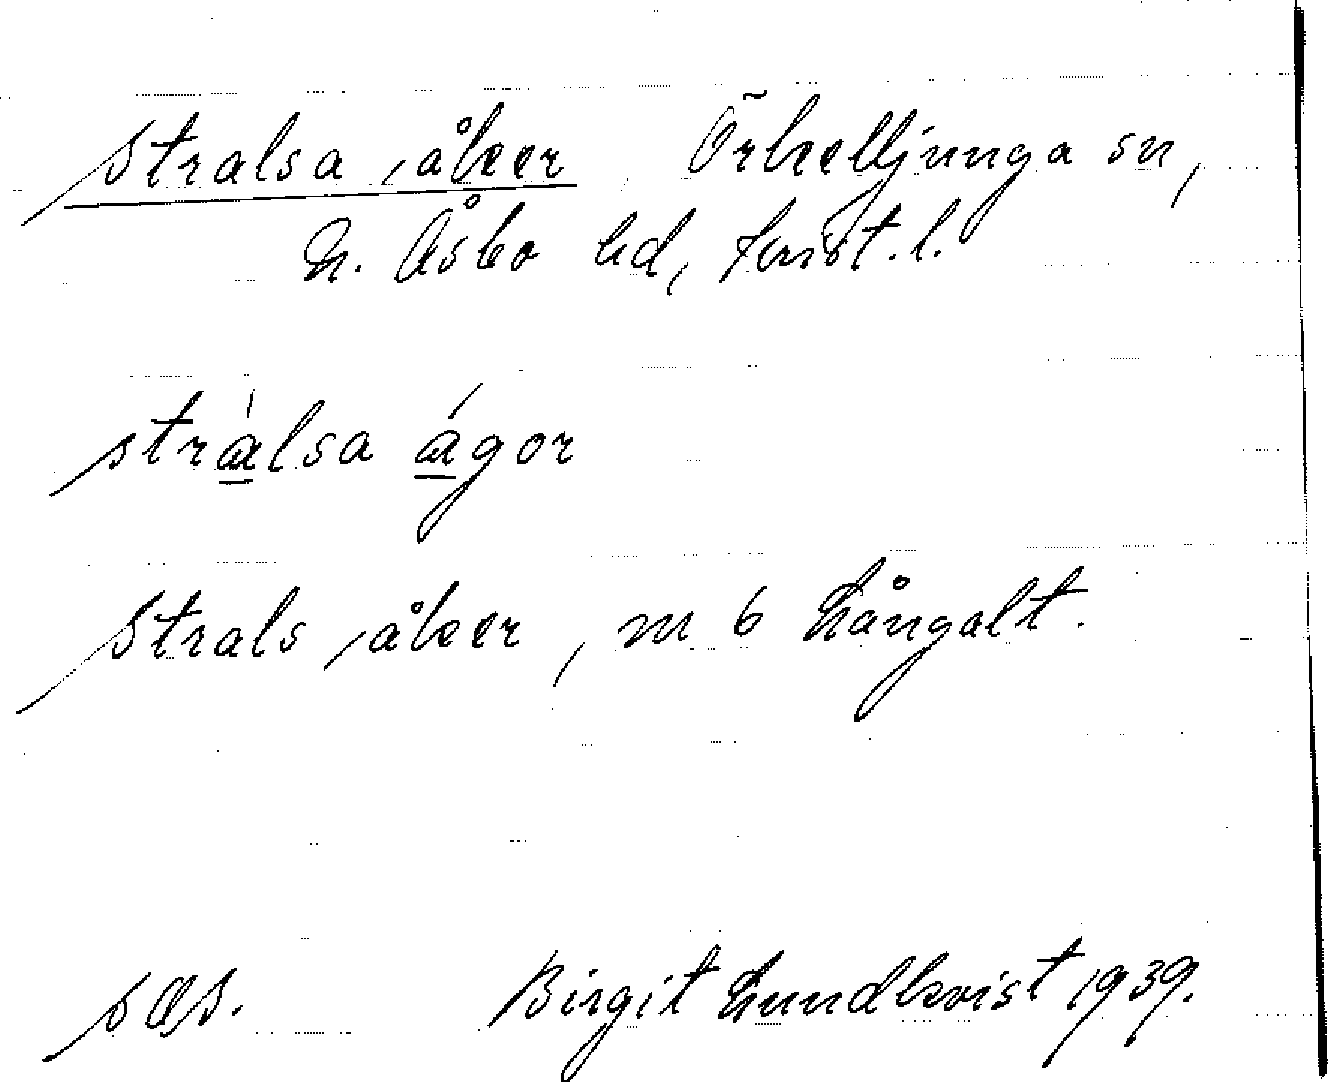 Stralsa, åker Örkelljunga sn,
N. Åsbo hd, Krist. l.
strálsa ágor
Strals, åker, m 6 Långalt.
sås. Birgit Lundkvist 1939.